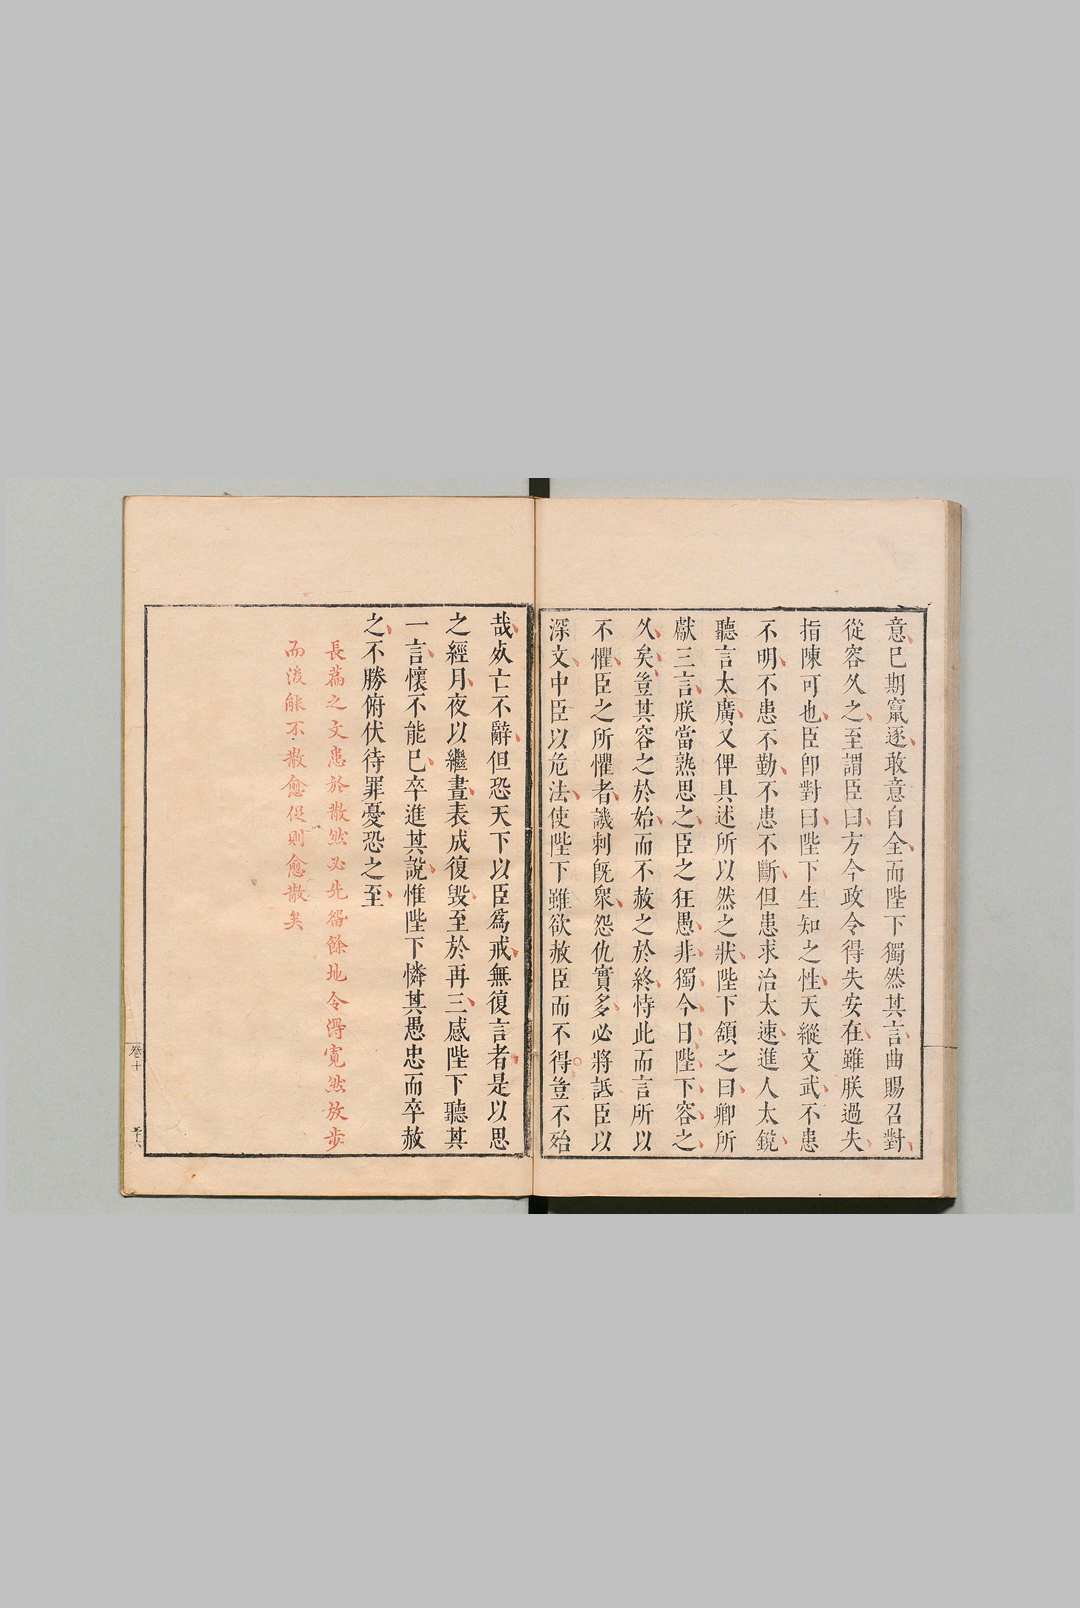 意已期竄逐敢意自全而陛下獨然其言曲賜召對
從容久之至謂臣曰方今政令得失安在雖朕過失
指陳可也臣卽對曰陛下生知之性天縱文武不患
不明不患不勤不患不斷但患求治太速進人太銳
聽言太廣又俾具述所以然之狀陛下頷之曰卿所
獻三言朕當熟思之臣之狂愚非獨今日陛下容之
久矣豈其容之於始而不赦之於終恃此而言所以
不懼臣之所懼者譏刺旣衆怨仇實多必將詆臣以
深文中臣以危法使陛下雖欲赦臣而不得豈不殆
哉死亡不辭但恐天下以臣爲戒無復言者是以思
之經月夜以繼晝表成復毀至於再三感陛下聽其
一言懷不能已卒進其說惟陛下憐其愚忠而卒赦
之不勝俯伏待罪憂恐之至
長篇之文患於散然必先留餘地令得寬然放步
而後能不散愈促則愈散矣
卷十